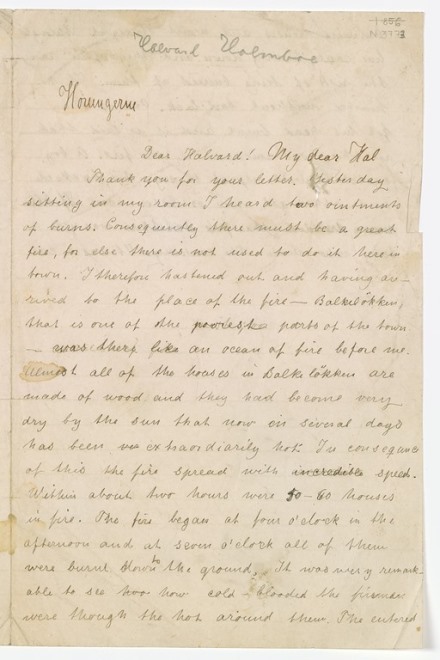 1656
Halvard Holmboe
Horungerne
Dear Halvard! My dear Hal
Thank you for your letter. Yesterday
sitting in my room I heard two ointments
of burns. Consequently there must be a great
fire, for else there is not used to do it here in
town. I therefore hastened out and having ar-
rived to the place of the fire — Balkeløkken,
that is one of the poorest parts of the town
— was there like an ocean of fire before me.
Allmost all of the houses in Balkeløkken are
made of wood and they had become very
dry by the sun that now in several days
has been extraordiarily hot. In consequence
of this the fire spread with incredible speed.
Within about two hours were 50-60 houses
in fire. The fire began at four o'clock in the
afternoon and at seven o'clock all of them
were burnt down to the ground. It was very remark-
able to see how cold-blooded the fireman
were though the hot around them. The entered